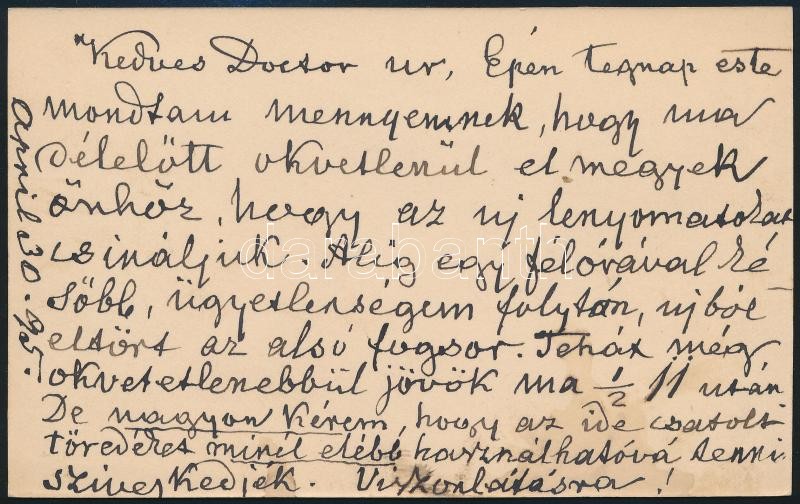 "Kedves Doctor ur, Épén tegnap este
mondtam mennyemnek, hogy ma
délelőtt okvetlenül el megyek
önhöz, hogy az uj lenyomatokat
csináljuk. Alig egy félórával ké-
sőbb, ügyetlenségem folytán, ujból
eltört az alsó fogsor. Tehát még
okvetetlenebbül jövök ma ½ 11 után
De nagyon kérem, hogy az ide csatolt
töredéket minél elébb használhatóvá tenni
sziveskedjék. Viszontlátásra!
April 30. 95.
darabanth